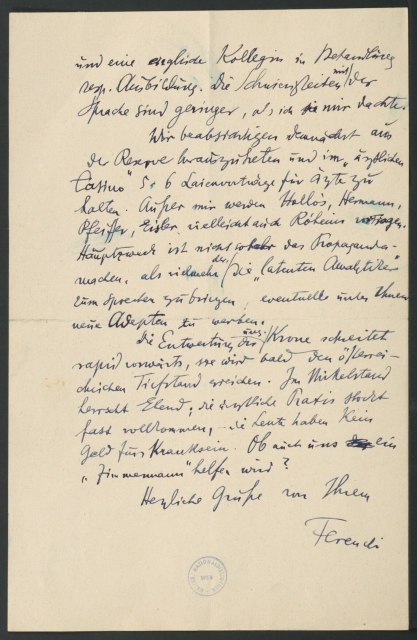 und eine englische Kollegin in Behandlung
resp. Ausbildung. Die Schwierigkeiten mit der
Sprache sind geringer, als ich sie mir dachte.
Wir beabsichtigen demnächst aus
der Reserve herauszutreten und im „ärztlichen
Casino" 5-6 Laienvorträge für Ärzte zu
halten. Außer mir werden Hollós, Hermann,
Pfeiffer, Eisler, vielleicht auch Róheim vortragen.
Hauptzweck ist nicht das Propaganda-
machen, als vielmehr der, die „latenten Analytiker"
zum Sprechen zu bringen, eventuelle unter Ihnen
neue Adepten zu werben.
Die Entwertung der ung. Krone schreitet
rapid vorwärts, sie wird bald den österrei-
chischen Tiefstand erreichen. Im Mittelstand
herrscht Elend; die ärztliche Praxis stockt
fast vollkommen, – die Leute haben kein
Geld fürs Kranksein. Ob auch uns ein
„Zimmermann" helfen wird?
Herzliche Grüße von Ihrem
Ferenczi